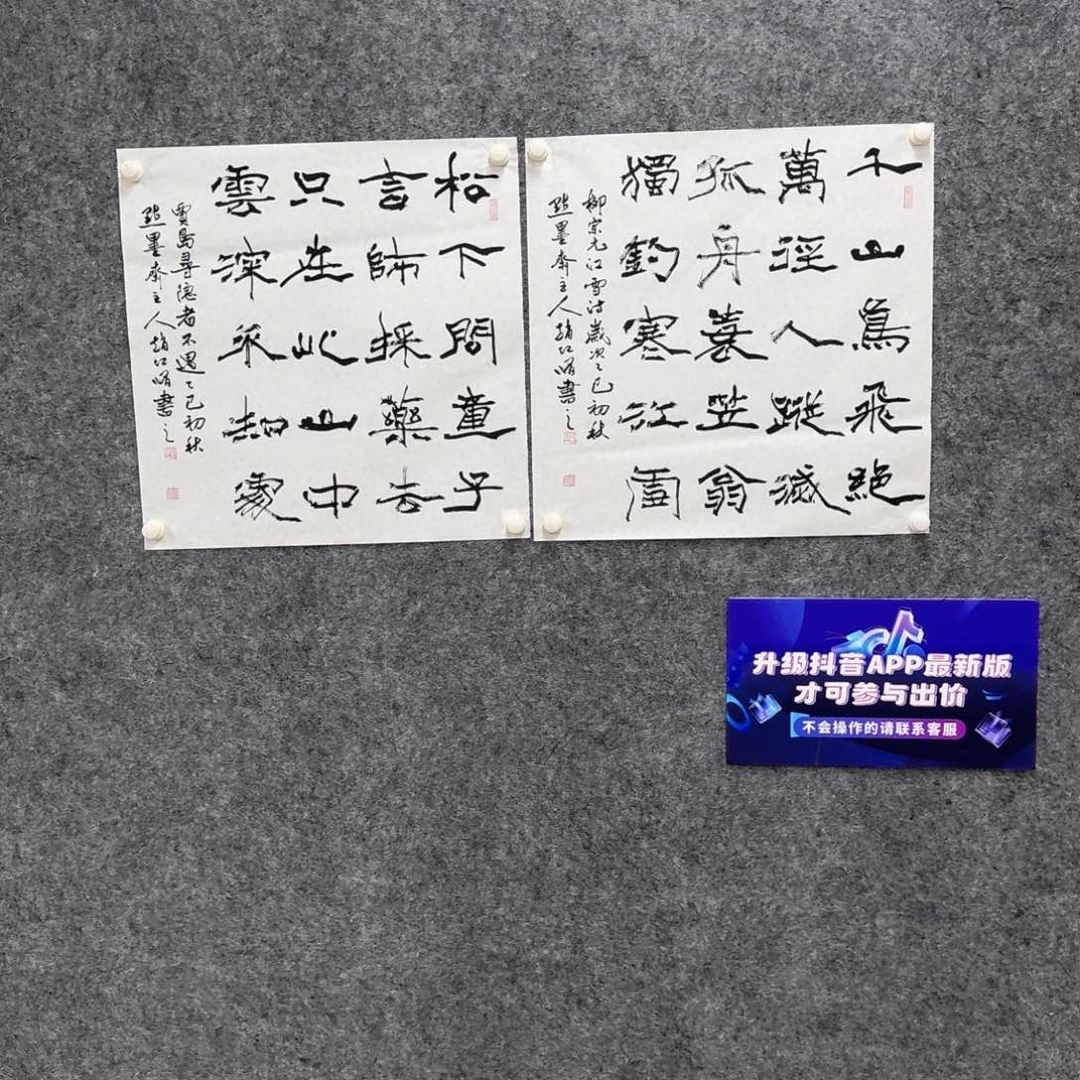 千山鳥飛絕
萬涇人蹤滅
孤舟蓑笠翁
獨釣寒江雪
柳宗元江雪诗歲次乙巳初秋
點墨齋主人趙江書之
松下問童子
言師採藥去
只在此山中
雲深不知處
賈島尋隐者不遇乙巳初秋
點墨齋主人趙江書之
升级抖音APP最新版
才可参与出价
不会操作的请联系客服